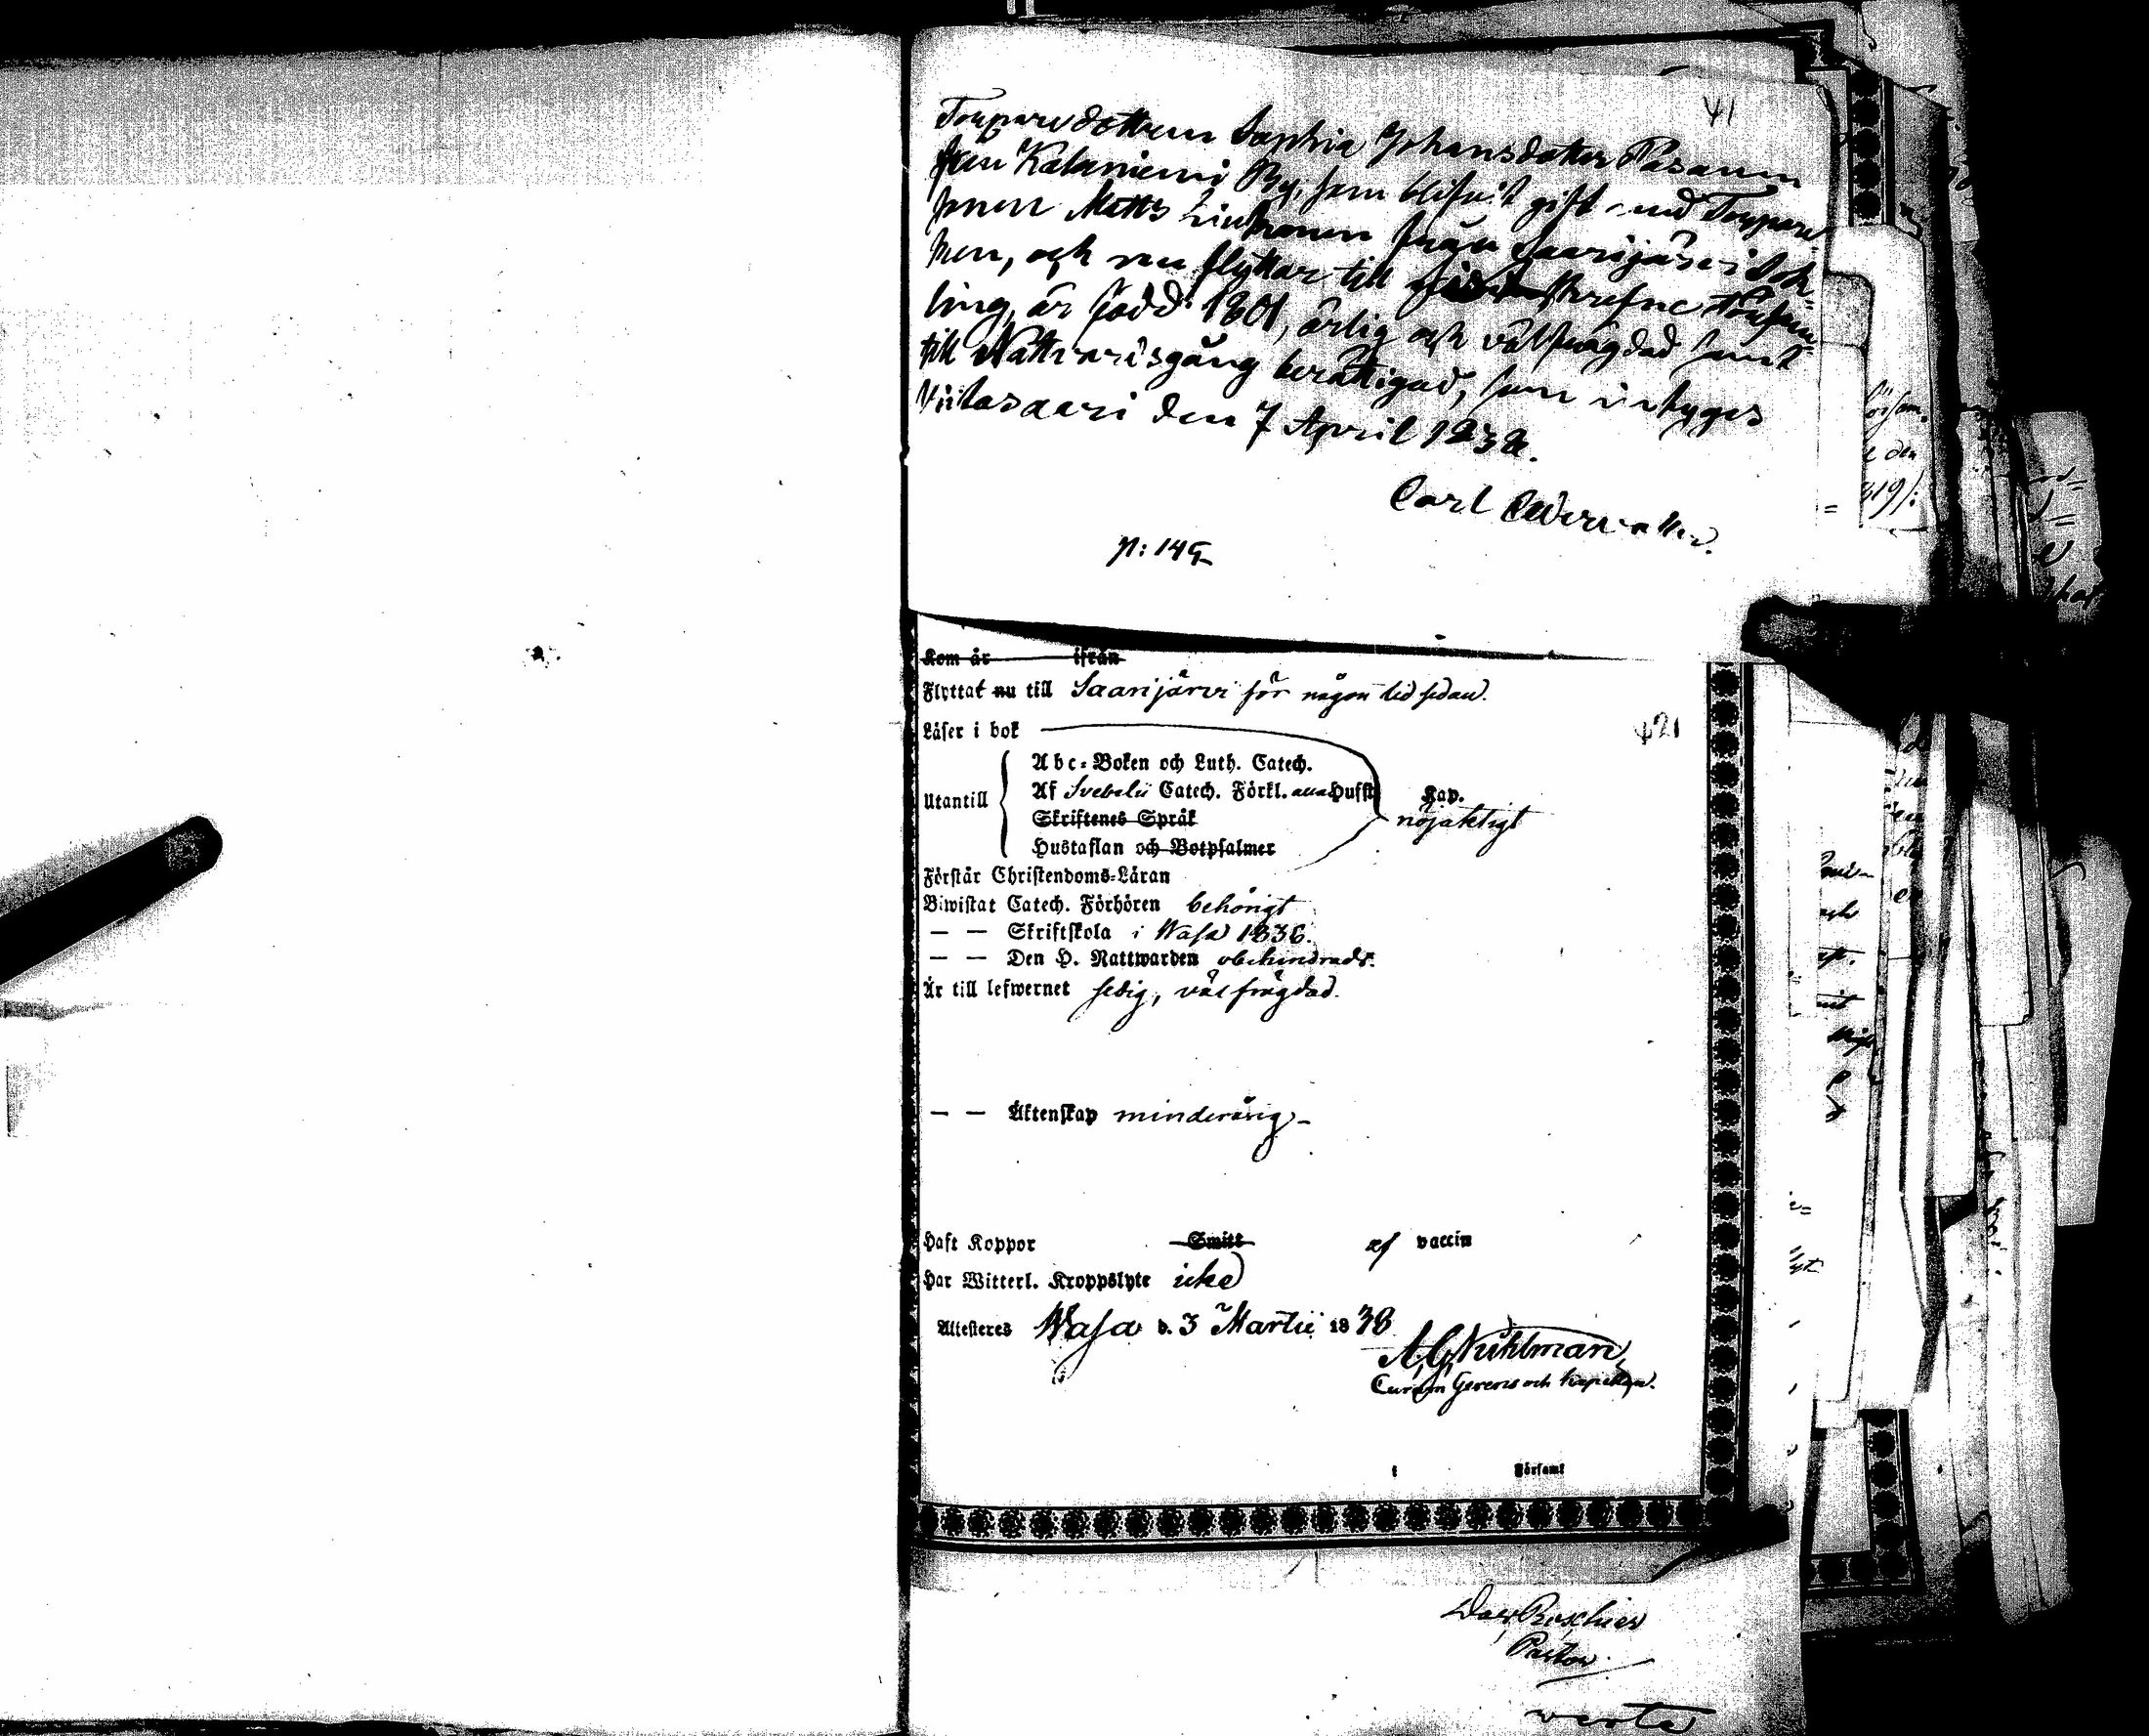 41
Torparedottren Sophia Johansdotter Pasanen
från Kalaniemi By, som blifvit gift med Torpare-
sonen Matts Liukonen från Saarijärvi Sok-
ken, och nu flyttar till förskrefne Försam-
ling, är född 1801, ärlig och välfrägdad samt
till Nattvardsgång berättigad, som intyges
Viitasaari den 7 April 1838.
Carl Cederwaller.
p: 145
Kom år ifrån
Flyttat nu till Saarijärvi för någon tid sedan.
421
Läser i bok
Abc-Boken och Luth. Catech.
Utantill Af Svebelii Catech. Förkl. Hufst. Kap.
nöjaktigt
Skriftenes Språk
Hustaflan och Botpsalmer
Förstår Christendoms-Läran
Biwistat Catech. Förhören behörigt
— — Skriftskola i Wasa 1836.
— — Den H. Nattwarden obehindradt.
Är till lefwernet sedig, välfrägdad.
— — Äktenskap minderårig
Haft Koppor Smitt af vaccin
Har Witterl. Kroppslyte icke
Attesteres Wasa d. 3 Martii 1838
A, G, Kuhlman,
Curam Gerens och kapellan.
i Församl
Pastor
verte